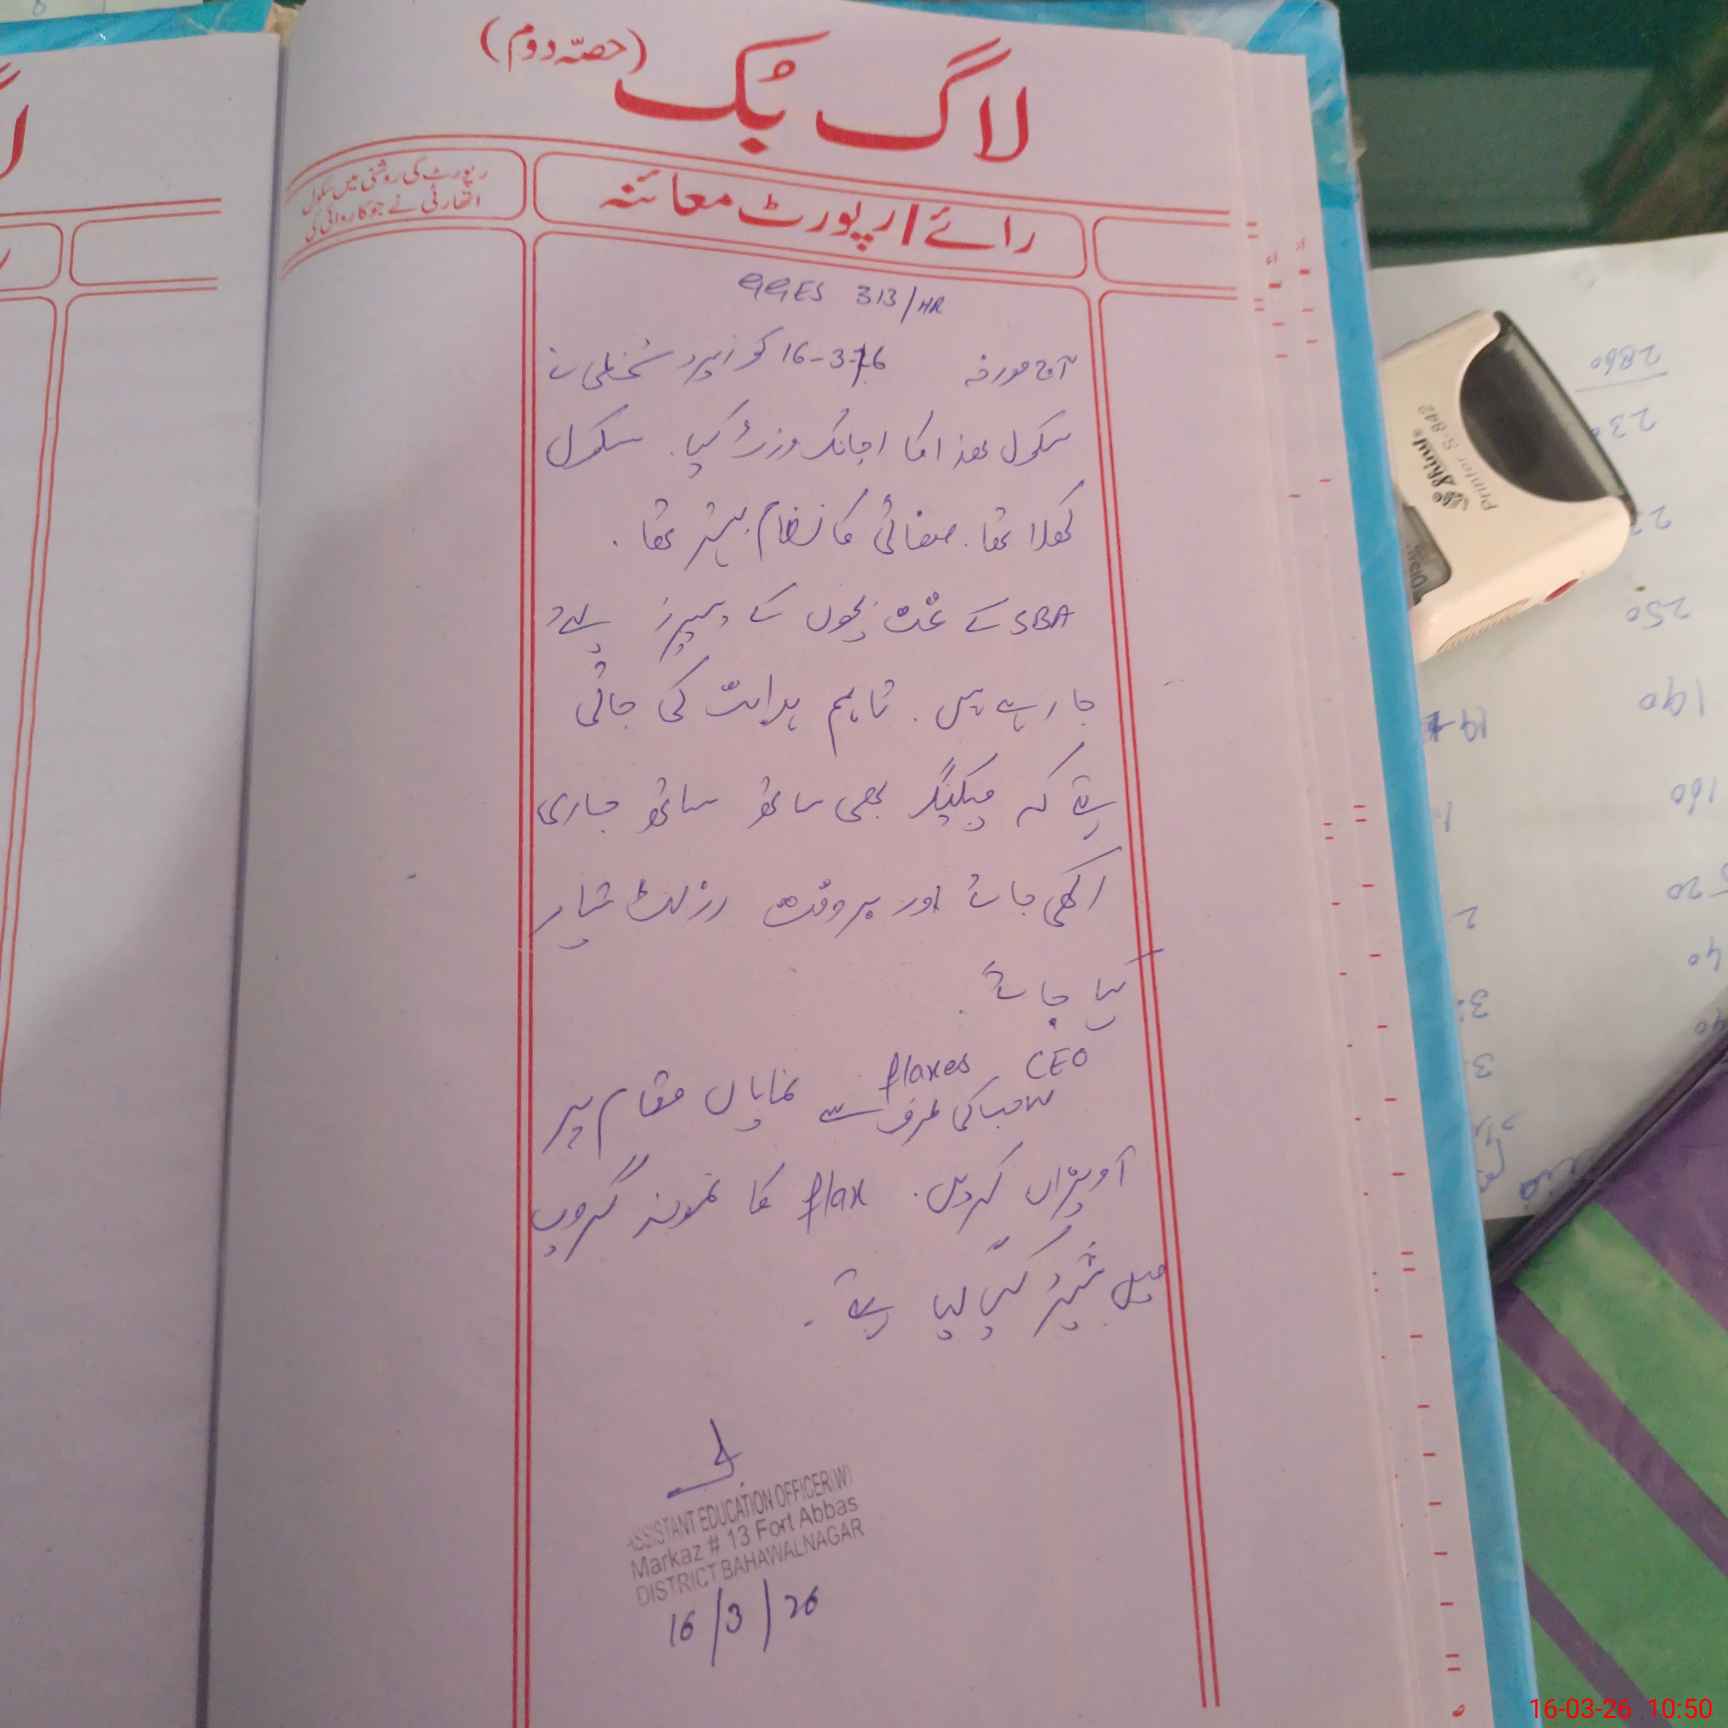 لاگ بک (حصہ دوم)
رائے / رپورٹ معائنہ
رپورٹ کی روشنی میں سکول
اتھارٹی نے جو کاروائی کی
GGES 313/HR
آج مورخہ 16-3-26 کو زیر دستخطی نے
سکول ھذا کا اچانک وزٹ کیا۔ سکول
کھلا تھا۔ صفائی کا نظام بہتر تھا۔
SBA کے تحت بچوں کے پیپرز لیے
جا رہے ہیں۔ تاہم ہدایت کی جاتی
ہے کہ چیکنگ بھی ساتھ ساتھ جاری
رکھی جائے اور بروقت رزلٹ تیار
کیا جائے۔
CEO صاحب کی طرف سے flaxes نمایاں مقام پر
آویزاں کریں۔ flax کا نمونہ گروپ
میں شیئر کیا گیا ہے۔
ASSISTANT EDUCATION OFFICER(W)
Markaz # 13 Fort Abbas
DISTRICT BAHAWALNAGAR
16/3/26
Shiny
Printer S-842
2860
250
190
160
520
40
16-03-26 10:50